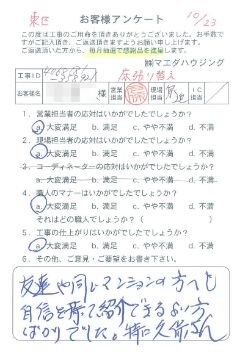 東区 お客様アンケート 10/23
この度は工事のご用命を頂きありがとうございました。お手数で
すがご記入頂き、ご返送頂きますようお願い申し上げます。
ご返送頂いた方から、毎月抽選で感謝品を進呈します。
㈱マエダハウジング
工事ID 床張り替え
お客様名 様 営業担当 現場担当 IC担当
1. 営業担当者の応対はいかがでしたでしょうか?
a. 大変満足 b. 満足 c. やや不満 d. 不満
2. 現場担当者の応対はいかがでしたでしょうか?
a. 大変満足 b. 満足 c. やや不満 d. 不満
3. コーディネーターの応対はいかがでしたでしょうか?
a. 大変満足 b. 満足 c. やや不満 d. 不満
4. 職人のマナーはいかがでしたでしょうか?
a. 大変満足 b. 満足 c. やや不満 d. 不満
それはどの職人でしょうか?( )
5. 工事の仕上がりはいかがでしたでしょうか?
a. 大変満足 b. 満足 c. やや不満 d. 不満
6. その他、ご意見・ご要望をお書き下さい。
友達や同じマンションの方へも
自信を持って紹介できるよい方
ばかりでした。特に久保さん